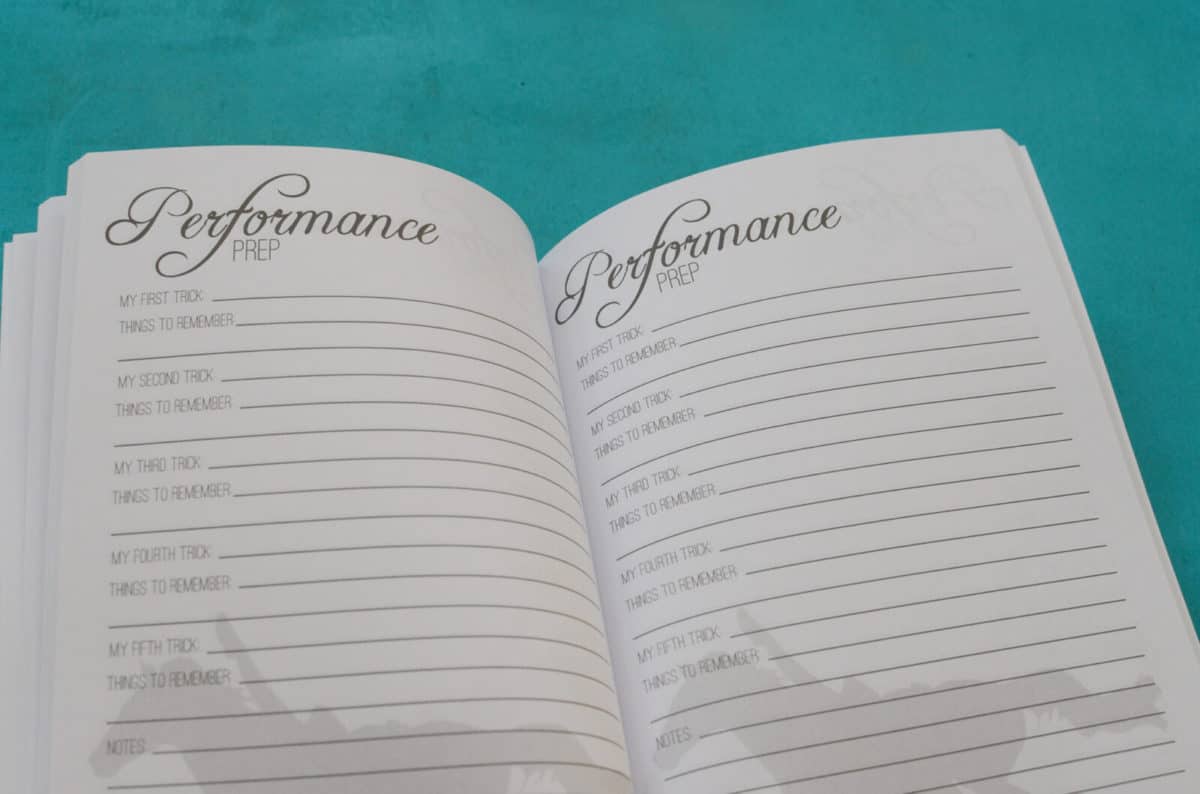 Performance
PREP
MY FIRST TRICK:
THINGS TO REMEMBER:
MY SECOND TRICK:
THINGS TO REMEMBER:
MY THIRD TRICK:
THINGS TO REMEMBER:
MY FOURTH TRICK:
THINGS TO REMEMBER:
MY FIFTH TRICK:
THINGS TO REMEMBER:
NOTES:
Performance
PREP
MY FIRST TRICK:
THINGS TO REMEMBER:
MY SECOND TRICK:
THINGS TO REMEMBER:
MY THIRD TRICK:
THINGS TO REMEMBER:
MY FOURTH TRICK:
THINGS TO REMEMBER:
MY FIFTH TRICK:
THINGS TO REMEMBER:
NOTES: